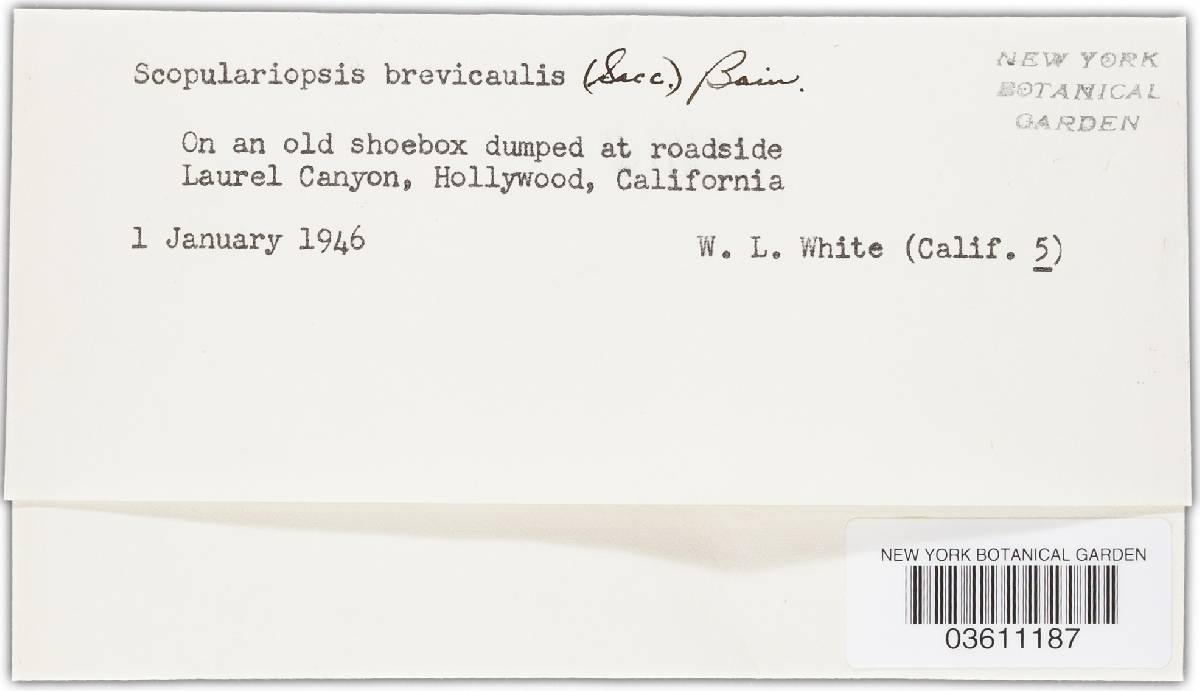 Scopulariopsis brevicaulis (Sacc.) Bain.
NEW YORK
BOTANICAL
GARDEN
On an old shoebox dumped at roadside
Laurel Canyon, Hollywood, California
1 January 1946
W. L. White (Calif. 5)
NEW YORK BOTANICAL GARDEN
03611187